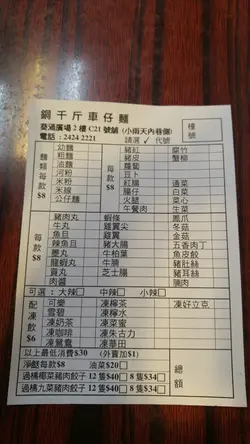 鋼千斤車仔麵
葵涌廣場2樓C21號舖 (小雨天內巷側)
電話：2424 2221 請選 ✓ 代號
檯號
麵類每款$8
幼麵
粗麵
油麵
河粉
米粉
米線
公仔麵
每款$8
豬紅 腐竹
豬皮 蟹柳
蘿蔔
豆卜
紅腸 通菜
腸仔 白菜
火腿 菜心
午餐肉 生菜
每款$8
豬肉丸 蝦條 鳳爪
牛丸 雞翼尖 冬菇
魚旦 雞翼 金菇
辣魚旦 豬大腸 五香肉丁
墨丸 牛柏葉 魚皮餃
龍蝦丸 牛腩 豬肚絲
貢丸 芝士腸 豬耳絲
肉醬 腩肉
可選： 大辣□ 中辣□ 小辣□
配凍飲$6
可樂 凍檸茶 凍好立克
雪碧 凍檸水
凍奶茶 凍菜蜜
凍咖啡 凍朱古力
凍鴛鴦 凍華田
以上最低消費$30 (外賣加$1)
淨餸每款$8 油菜$20□
過橋椰菜豬肉餃子 12隻$40□ 8隻$34□
過橋九菜豬肉餃子 12隻$40□ 8隻$34□
總額